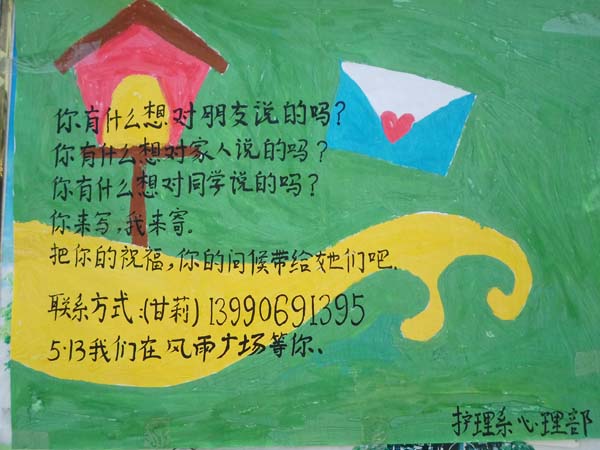 你有什么想对朋友说的吗?
你有什么想对家人说的吗?
你有什么想对同学说的吗?
你来写,我来寄。
把你的祝福,你的问候带给她们吧.
联系方式:(甘莉)13990691395
5·13我们在风雨广场等你、
护理系心理部